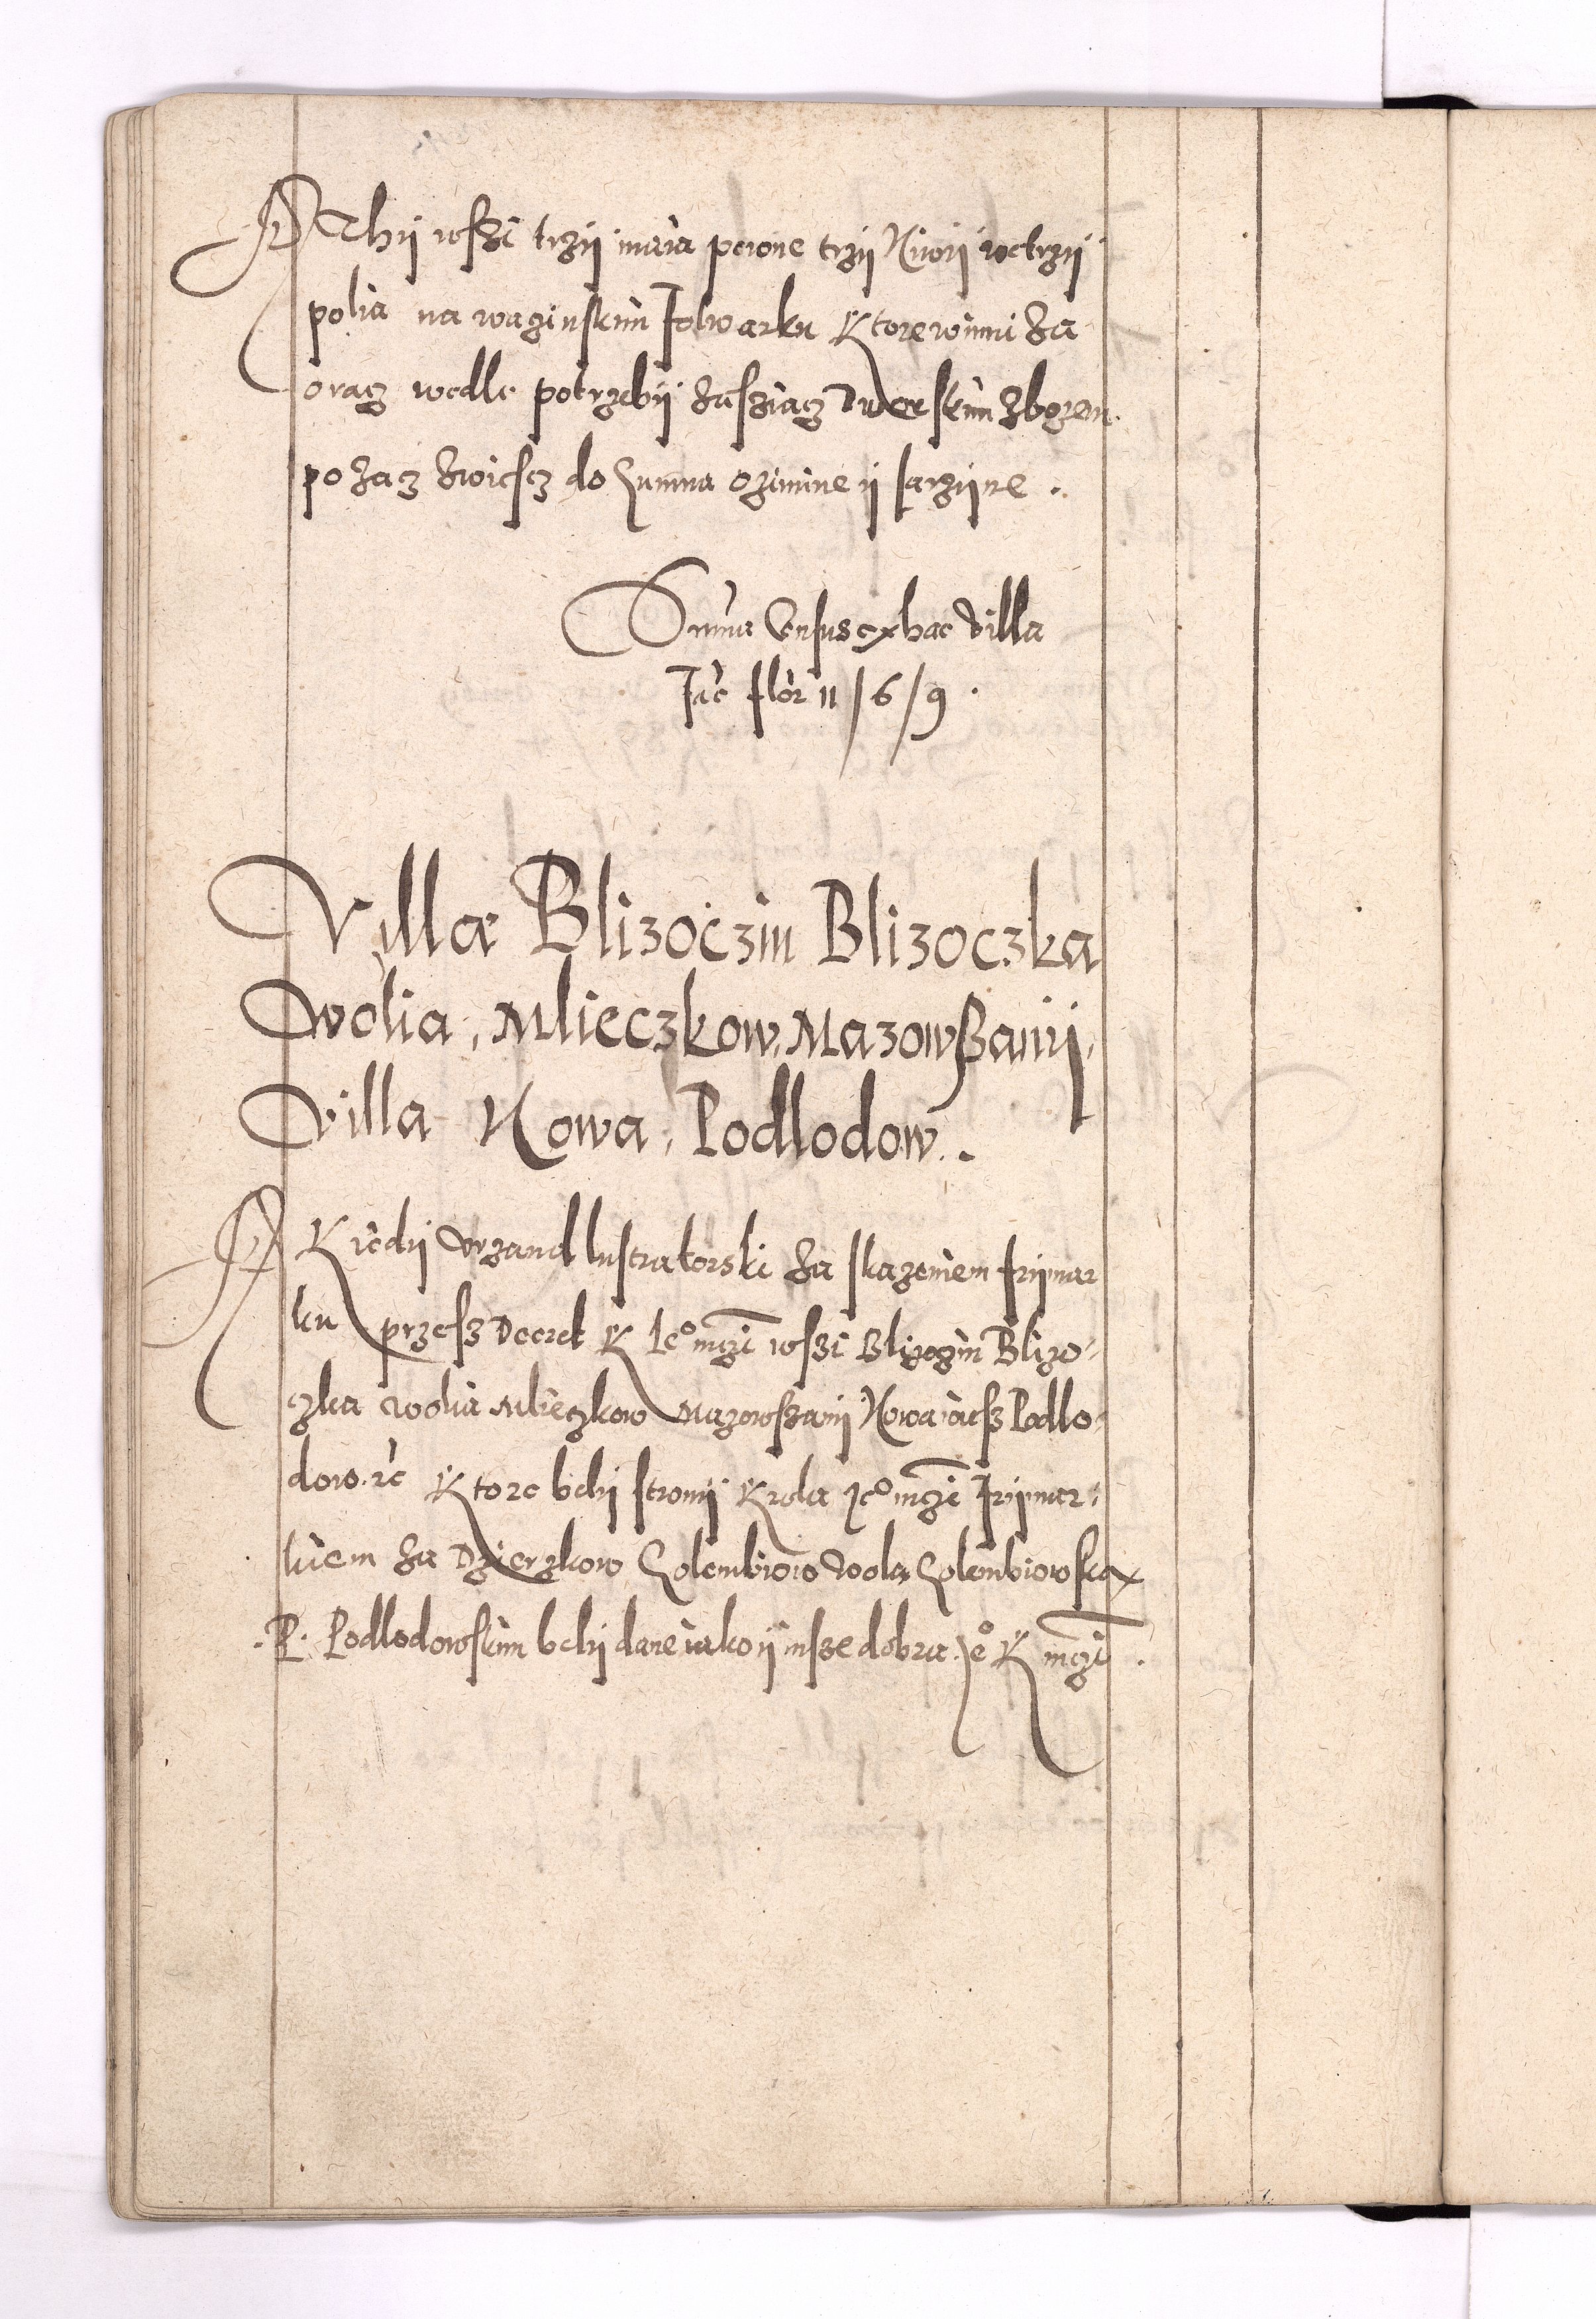 Thÿ wszi trzÿ maia pewne trzÿ Niwÿ wetrzÿ
polia na waginskim Folwarku Ktore winni Za
oracz wedle potrzebÿ Zasziacz Dworskim Zbozem
po Zacz Zwiescz do Gumna Ozimine ÿ Jarzÿne.
Summa Census ex hac Villa
Fac flor 11/6/9.
Villæ Blizoczin Blizoczka
Wolia, Mlieczkow, Mazowßanÿ,
Villa Nowa, Podlodow.
Kiedÿ Vrzand lustratorski Za skazeniem frÿmar
ku przesz Decret K Je° mczi wszi Blizoczin Blizo-
czka Wolia Mlieczkow Mazowszanÿ Nowa wiesz Podlo-
dow. rc Ktore belÿ stronÿ Krola Je° mczi Frÿmar-
kiem Za Dzierzkow Golembiow Wola Golembiowska
.P. Podlodowskim belÿ dane iako ÿ insze dobra Je° K mczi.